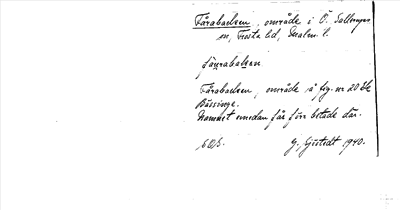 Fårabacken, område i Ö. Sallerups
sn, Frosta hd, Malm. l.
fåŋrabaksen
Fårabacken, område å frg. nr 20 bl
Bössinge.
Namnet emedan får förr betade där.
G. Gjstedt 1940.